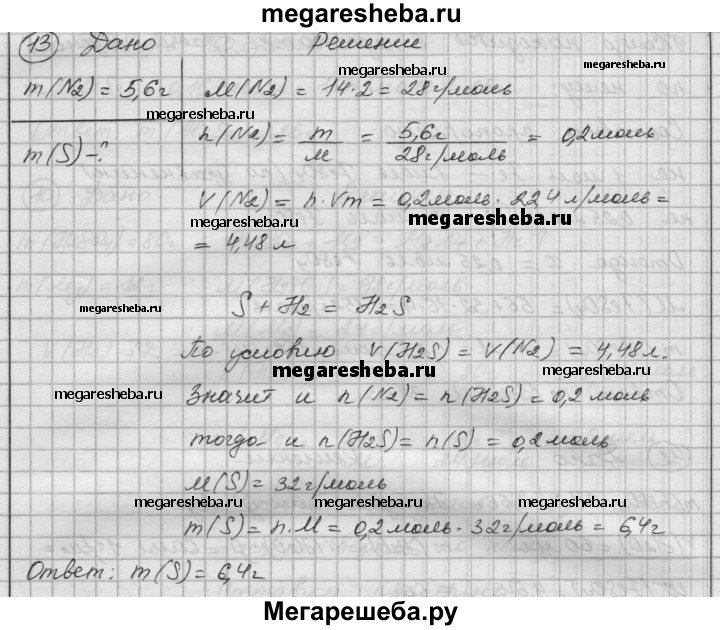 megaresheba.ru
13 Дано Решение
megaresheba.ru
megaresheba.ru
m(N2) = 5,6г M(N2) = 14·2 = 28г/моль
megaresheba.ru
megaresheba.ru
m(S) - ? n(N2) = m/M = 5,6г/28г/моль = 0,2моль
V(N2) = n·Vm = 0,2моль · 22,4 л/моль =
megaresheba.ru
megaresheba.ru
= 4,48 л
megaresheba.ru
megaresheba.ru
S + H2 = H2S
По условию V(H2S) = V(N2) = 4,48л.
megaresheba.ru
megaresheba.ru
megaresheba.ru
Значит и n(N2) = n(H2S) = 0,2 моль
тогда и n(H2S) = n(S) = 0,2моль
M(S) = 32г/моль
megaresheba.ru
megaresheba.ru
m(S) = n·M = 0,2моль · 32г/моль = 6,4г
Ответ: m(S) = 6,4г
Мегарешеба.ру